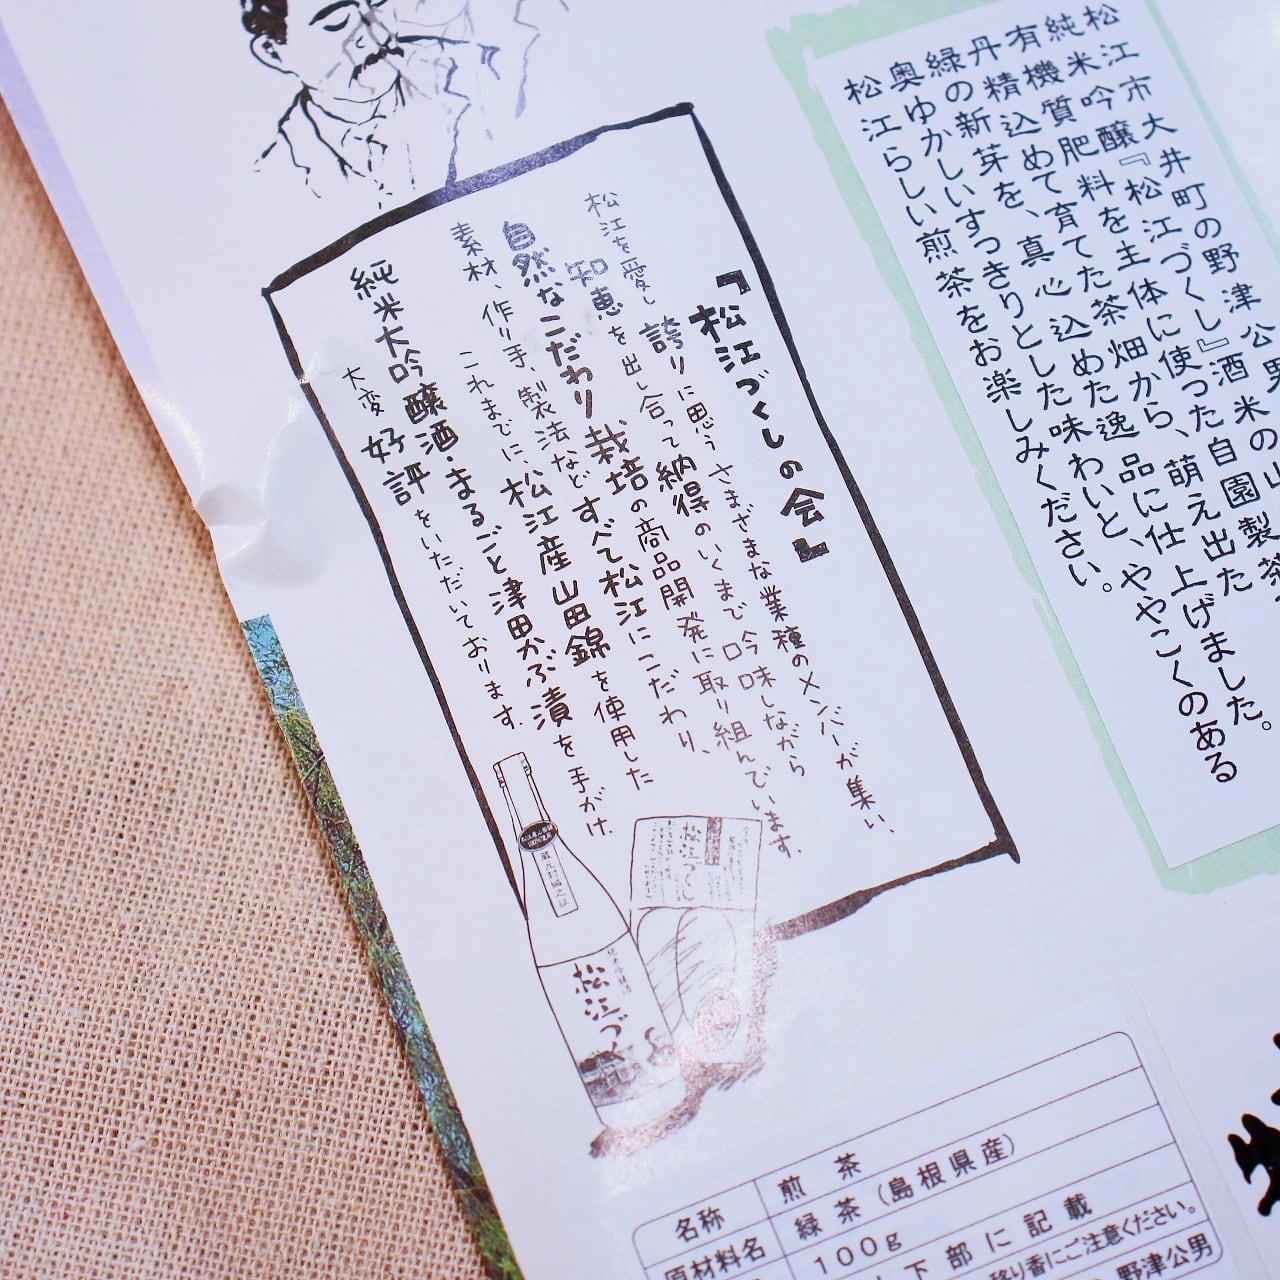 松江市大井町の野津公男の自園製茶
純米吟醸『松江づくし』酒米の山
有機質肥料を主体に使った
丹精込めて育てた茶畑から、萌え出た
緑の新芽を、真心込めた逸品に仕上げました。
奥ゆかしいすっきりとした味わいと、ややこくのある
松江らしい煎茶をお楽しみください。
『松江づくしの会』
松江を愛し誇りに思うさまざまな業種のメンバーが集い、
知恵を出し合って納得のいくまで吟味しながら
自然なこだわり栽培の商品開発に取り組んでいます。
素材、作り手、製法などすべて松江にこだわり、
これまでに、松江産山田錦を使用した
純米大吟醸酒・まるごと津田かぶ漬を手がけ、
大変好評をいただいております。
松江づくし
蔵元封緘之証
松江づ
名称 煎茶
原材料名 緑茶(島根県産)
100g
下部に記載
移り香にご注意ください。
野津公男